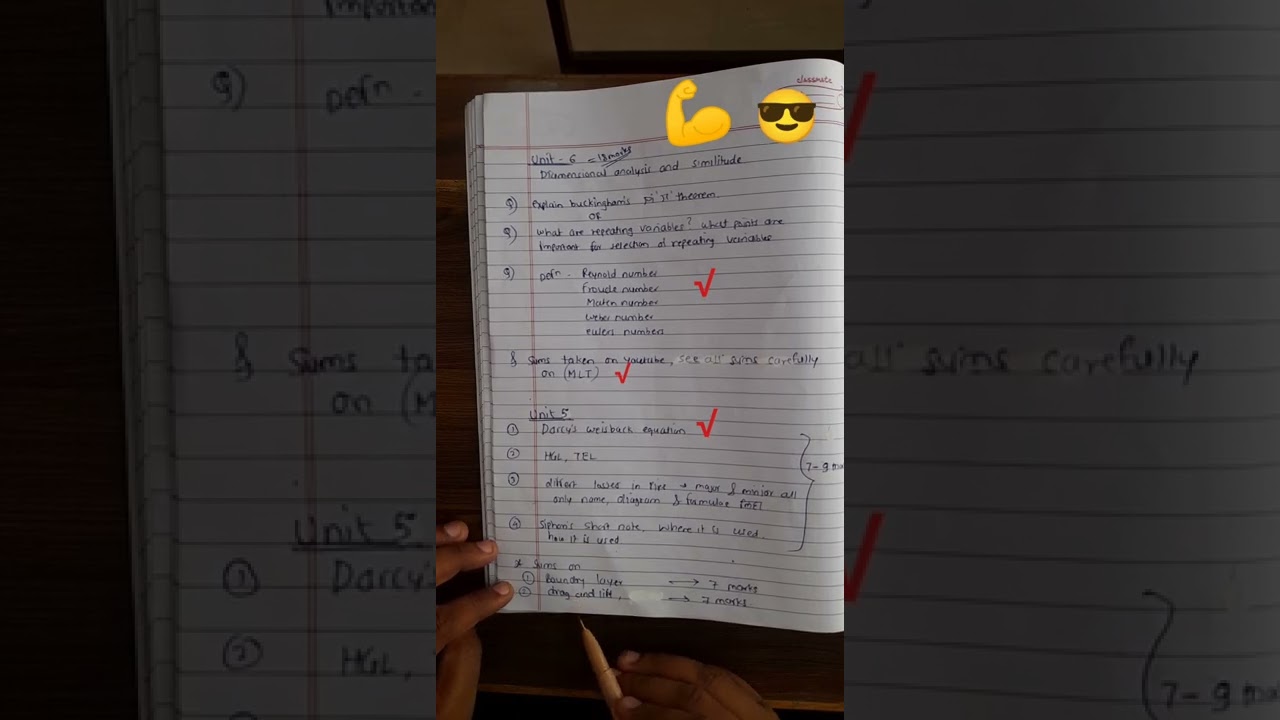 classmate
Unit - 6 = 18 marks
Diamensional analysis and similitude
Q) explain buckingham's pi 'π' theorem.
OR
Q) what are repeating variables? what points are
important for selection of repeating variables
Q) Defn - Reynold number
Froude number
Match number
weber number
eulers numbers
& Sums taken on youtube, see all sums carefully
on (MLT)
Unit 5
① Darcy's weisback equation
② HGL, TEL
③ differt losses in Pipe → major & minior all
only name, diagram & formulae
7-9 ma
④ Siphon's short note, where it is used.
how it is used
* Sums on
① Boundry layer → 7 marks
② drag and lift, → 7 marks